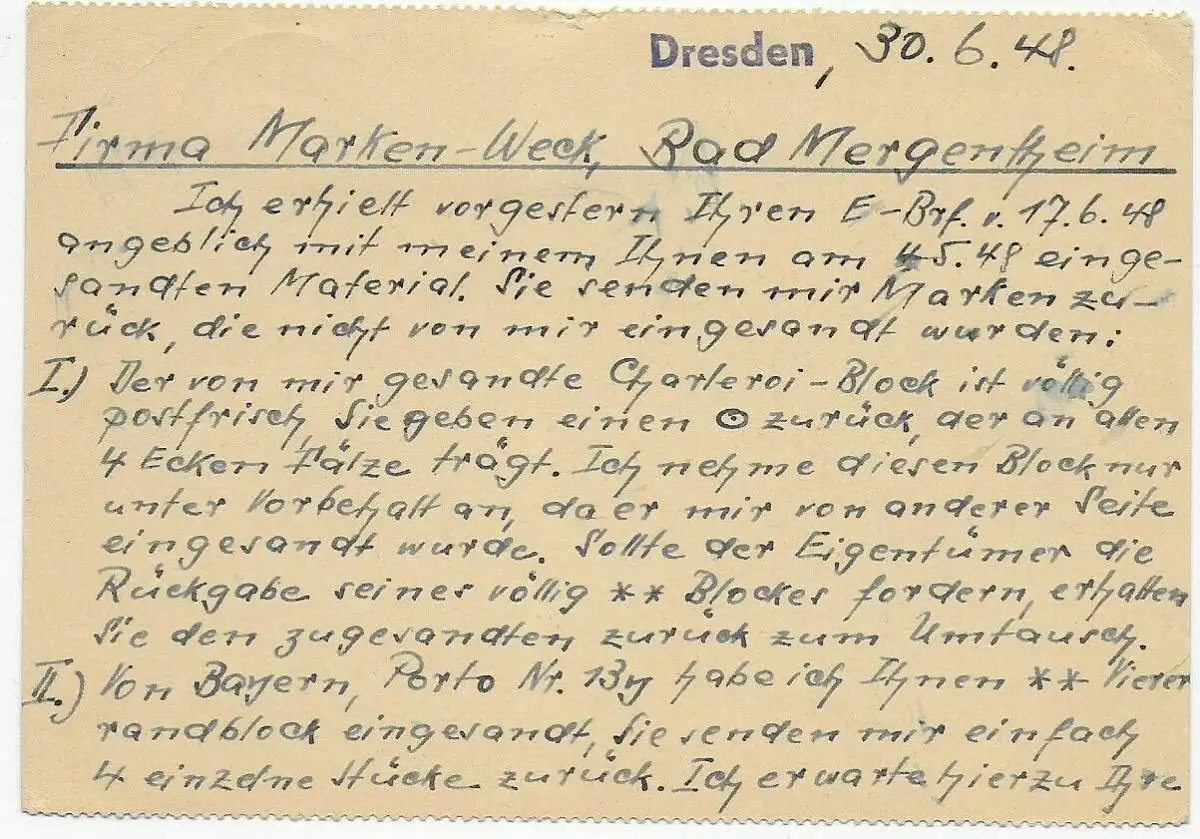 Dresden, 30.6.48.
Firma Marken-Weck, Bad Mergentheim
Ich erhielt vorgestern Ihren E-Brf. v. 17.6.48
angeblich mit meinem, Ihnen am 4.5.48 einge-
sandten Material. Sie senden mir Marken zu-
rück, die nicht von mir eingesandt wurden:
I.) Der von mir gesandte Charleroi-Block ist völlig
postfrisch, Sie geben einen ⊙ zurück, der an allen
4 Ecken Fälze trägt. Ich nehme diesen Block nur
unter Vorbehalt an, da er mir von anderer Seite
eingesandt wurde. Sollte der Eigentümer die
Rückgabe seines völlig ** Blockes fordern, erhalten
Sie den zugesandten zurück zum Umtausch.
II.) Von Bayern, Porto Nr. 13y habe ich Ihnen ** Vierer
randblock eingesandt, Sie senden mir einfach
4 einzelne Stücke zurück. Ich erwarte hierzu Ihre